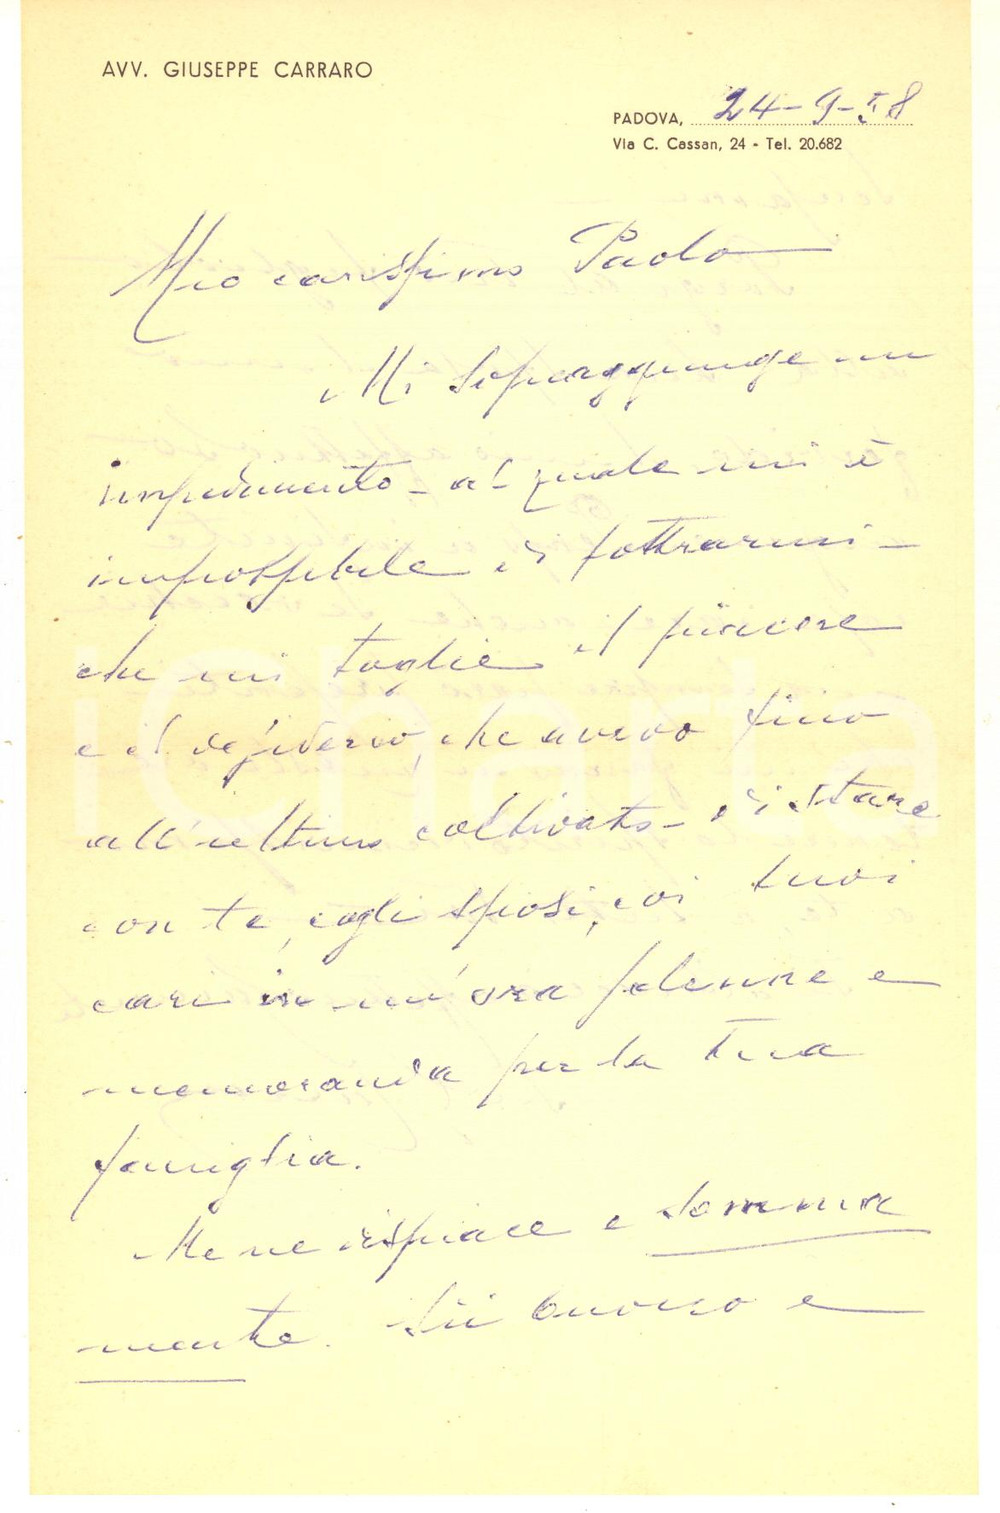 AVV. GIUSEPPE CARRARO
PADOVA, 24-9-58
Via C. Cassan, 24 - Tel. 20.682
Mio carissimo Paolo
Mi sopraggiunge un
impedimento - al quale mi è
impossibile di sottrarmi -
che mi toglie il piacere
e il desiderio, che avevo fino
all'ultimo coltivato - di stare
con te, cogli sposi, coi tuoi
cari in un'ora solenne e
memoranda per la tua
famiglia.
Me ne dispiace e somma
mente. Sii buono e
iCharta